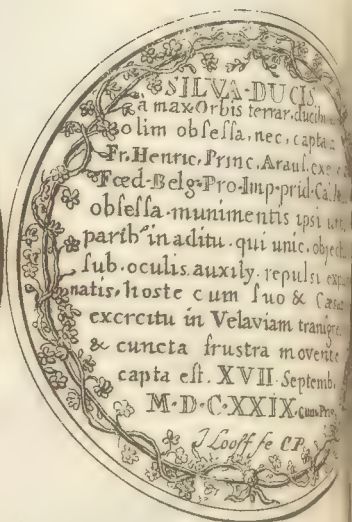 SILVA-DUCIS
a max. Orbis terrar. ducib
olim obsessa, nec, capta a
Fr. Henric. Princ. Araus.
Fœd-Belg-Pro-Imp-prid
obsessa munimentis ipsi
parib' in aditu. qui unic. object
sub. oculis. auxily. repulsi
natis, hoste cum suo & Cæsar
exercitu in Velaviam transgre
& cuncta frustra movente
capta est. XVII. Septemb.
M·D·C·XXIX. cum
I Looff fe CP.